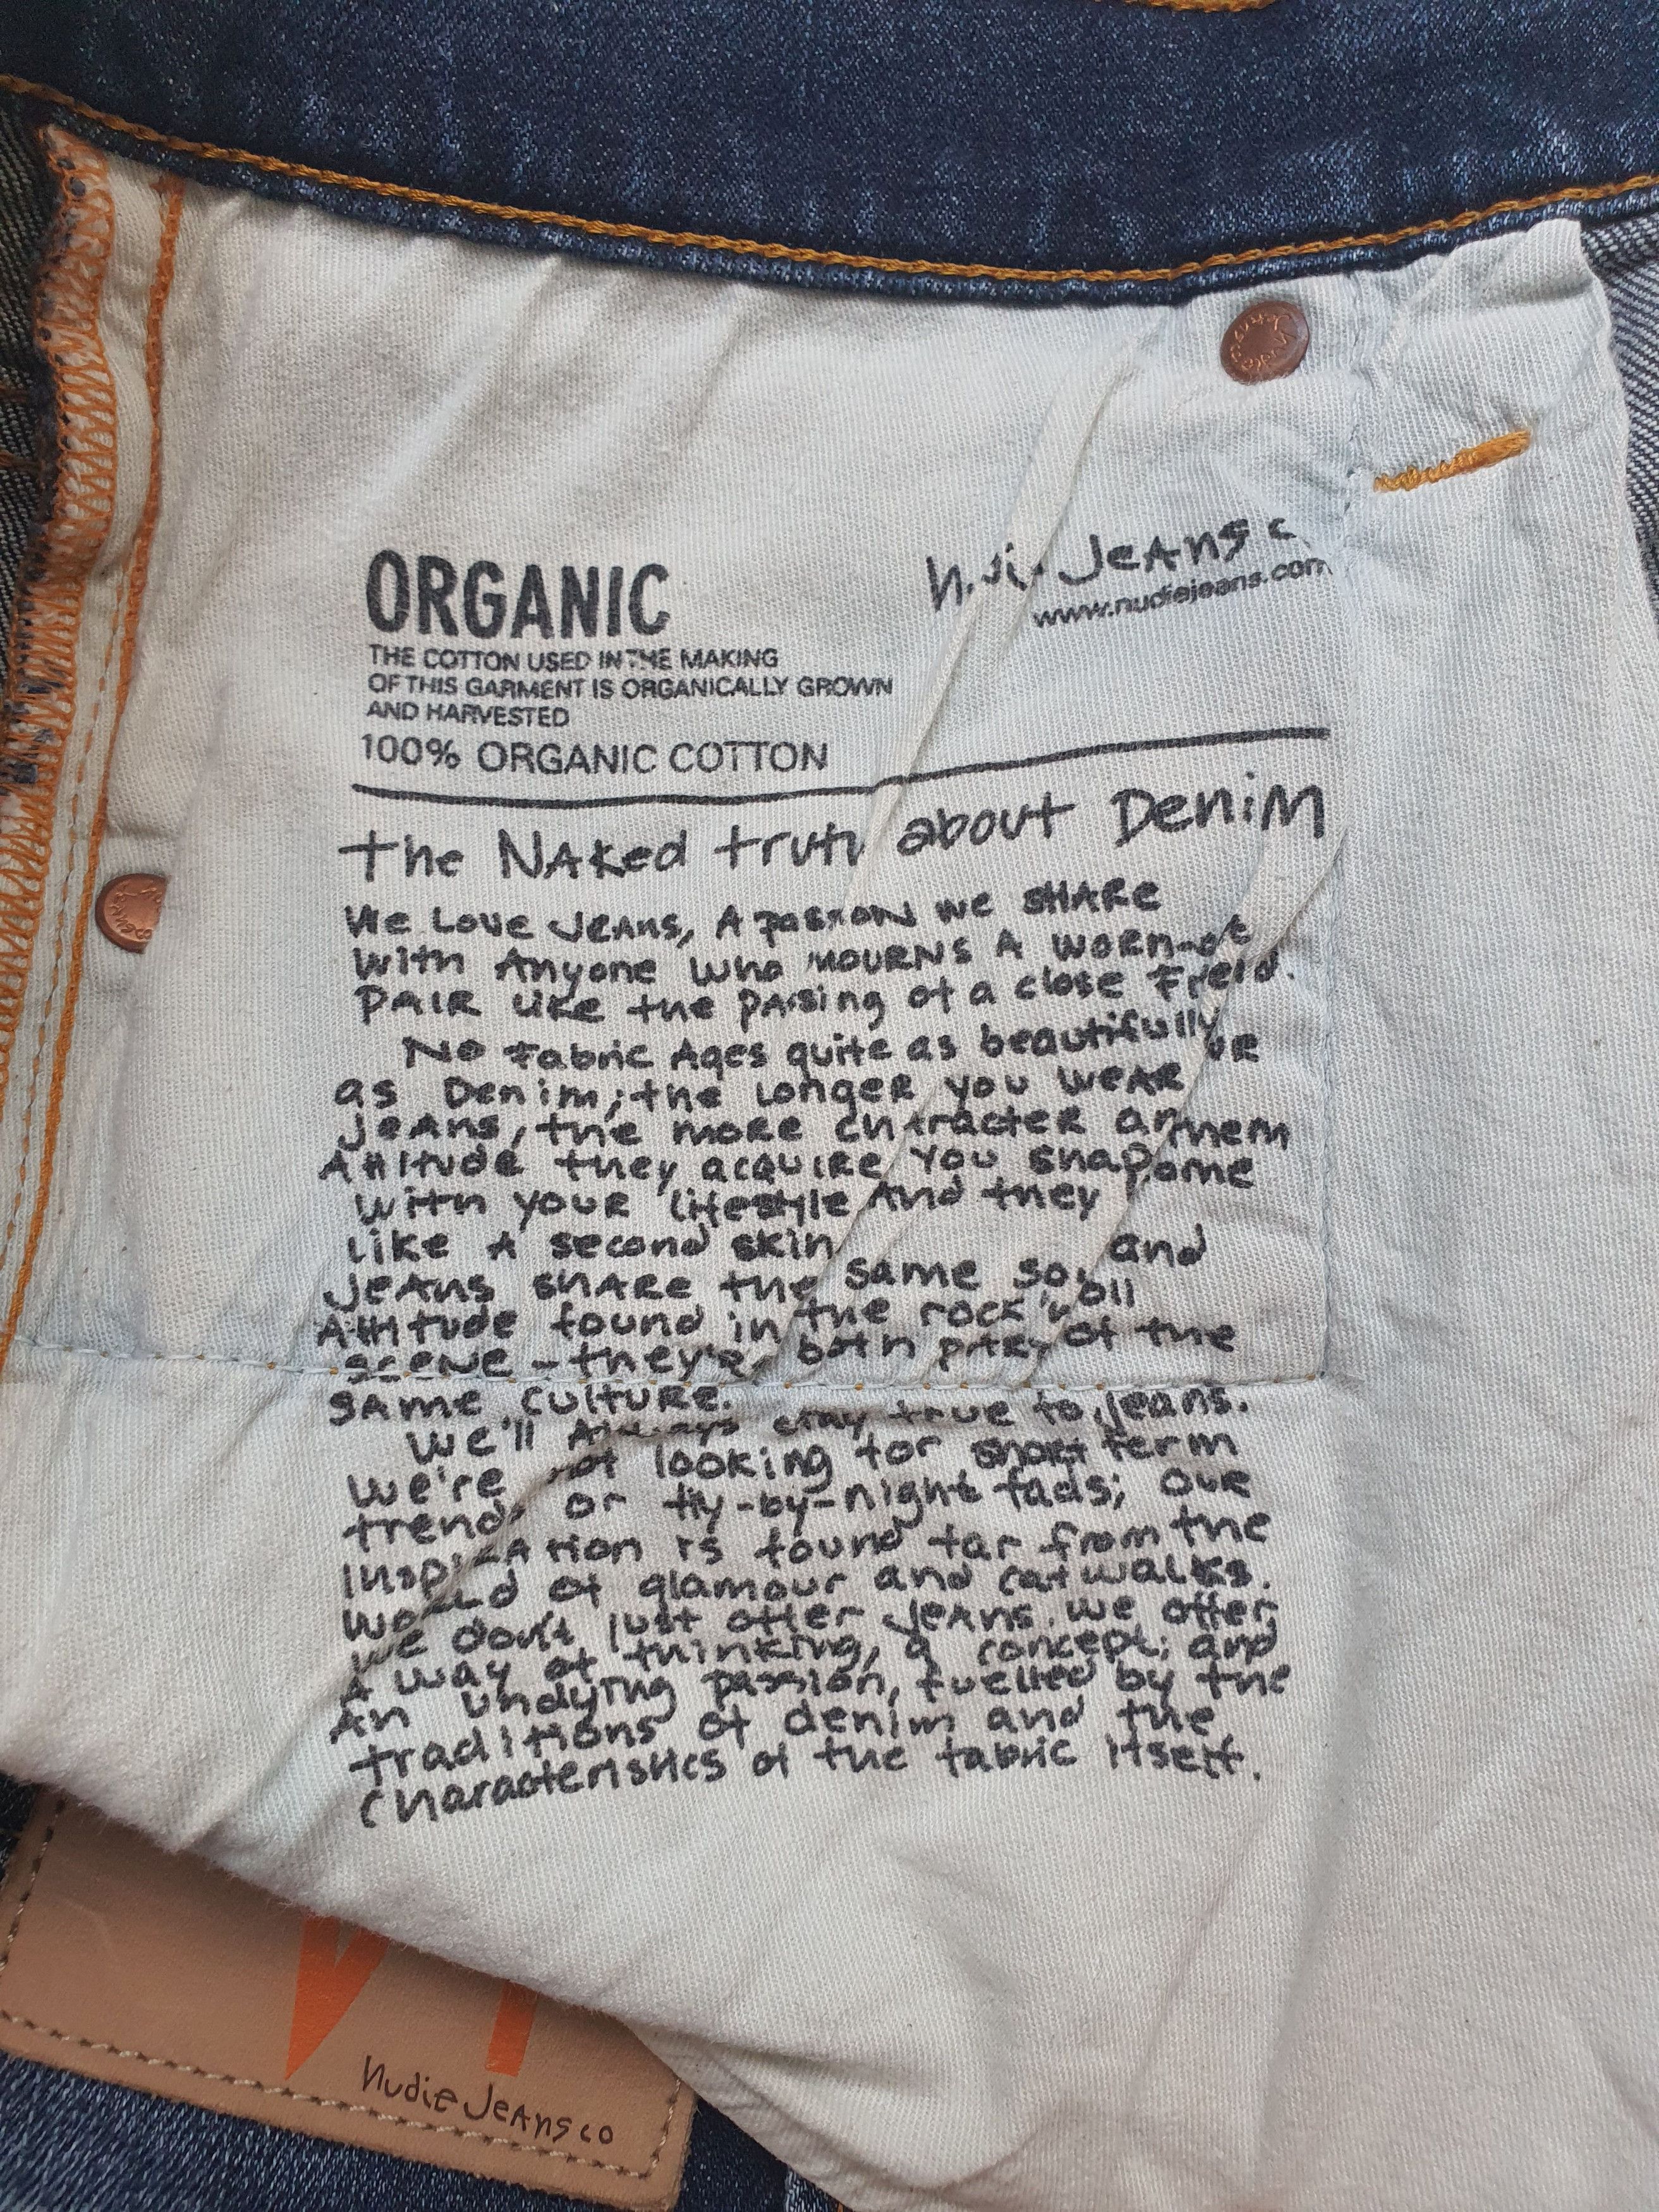 ORGANIC
THE COTTON USED IN THE MAKING
OF THIS GARMENT IS ORGANICALLY GROWN
AND HARVESTED
100% ORGANIC COTTON
Jeans c
www.nudiejeans.com
The Naked truth about Denim
We Love Jeans, A passion we share
with Anyone who mourns A worn-out
pair like the passing of a close Freind.
No Fabric Ages quite as beautifully
as Denim; the longer you wear
jeans, the more character
Attitude they acquire You
with your lifestyle And they
like A second skin and
jeans share the same
Attitude found in the rock'n
scene - they're both part of the
same culture.
We'll Always stay true to jeans.
We're not looking for short term
trends or fly-by-night fads; our
Inspiration is found far from the
World of glamour and catwalks.
We don't just offer Jeans, we offer
A way of thinking, a concept; and
An undying passion, fuelled by the
traditions of denim and the
characteristics of the fabric itself.
Nudie Jeans co